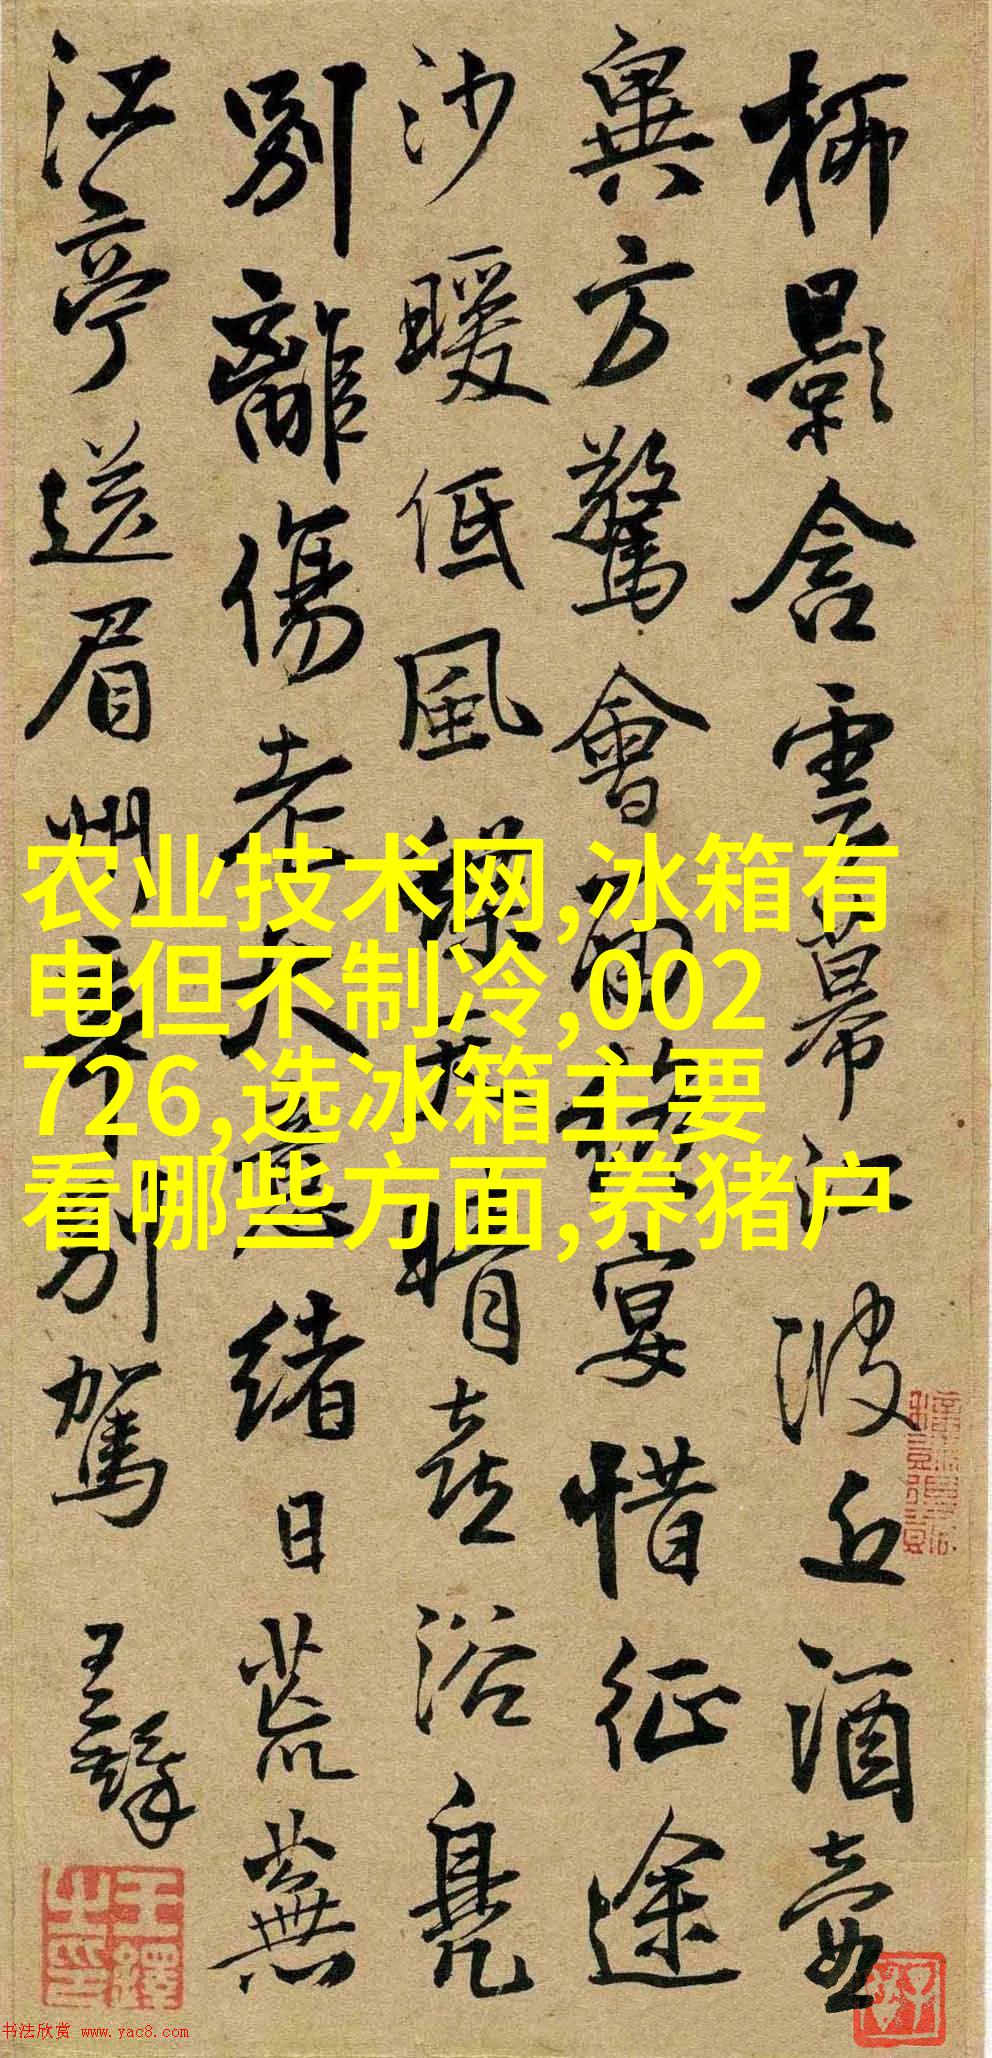 柳影含雲幕江波近酒壺
異方驚會面終宴惜征途
沙暖低風蝶天晴喜浴鳧
別離傷老大意緒日荒蕪
江亭送眉州辛別駕 王鐸
王鐸之印
农业技术网,冰箱有
电但不制冷,002
726,选冰箱主要
看哪些方面,养猪户
书法欣赏 www.yac8.com